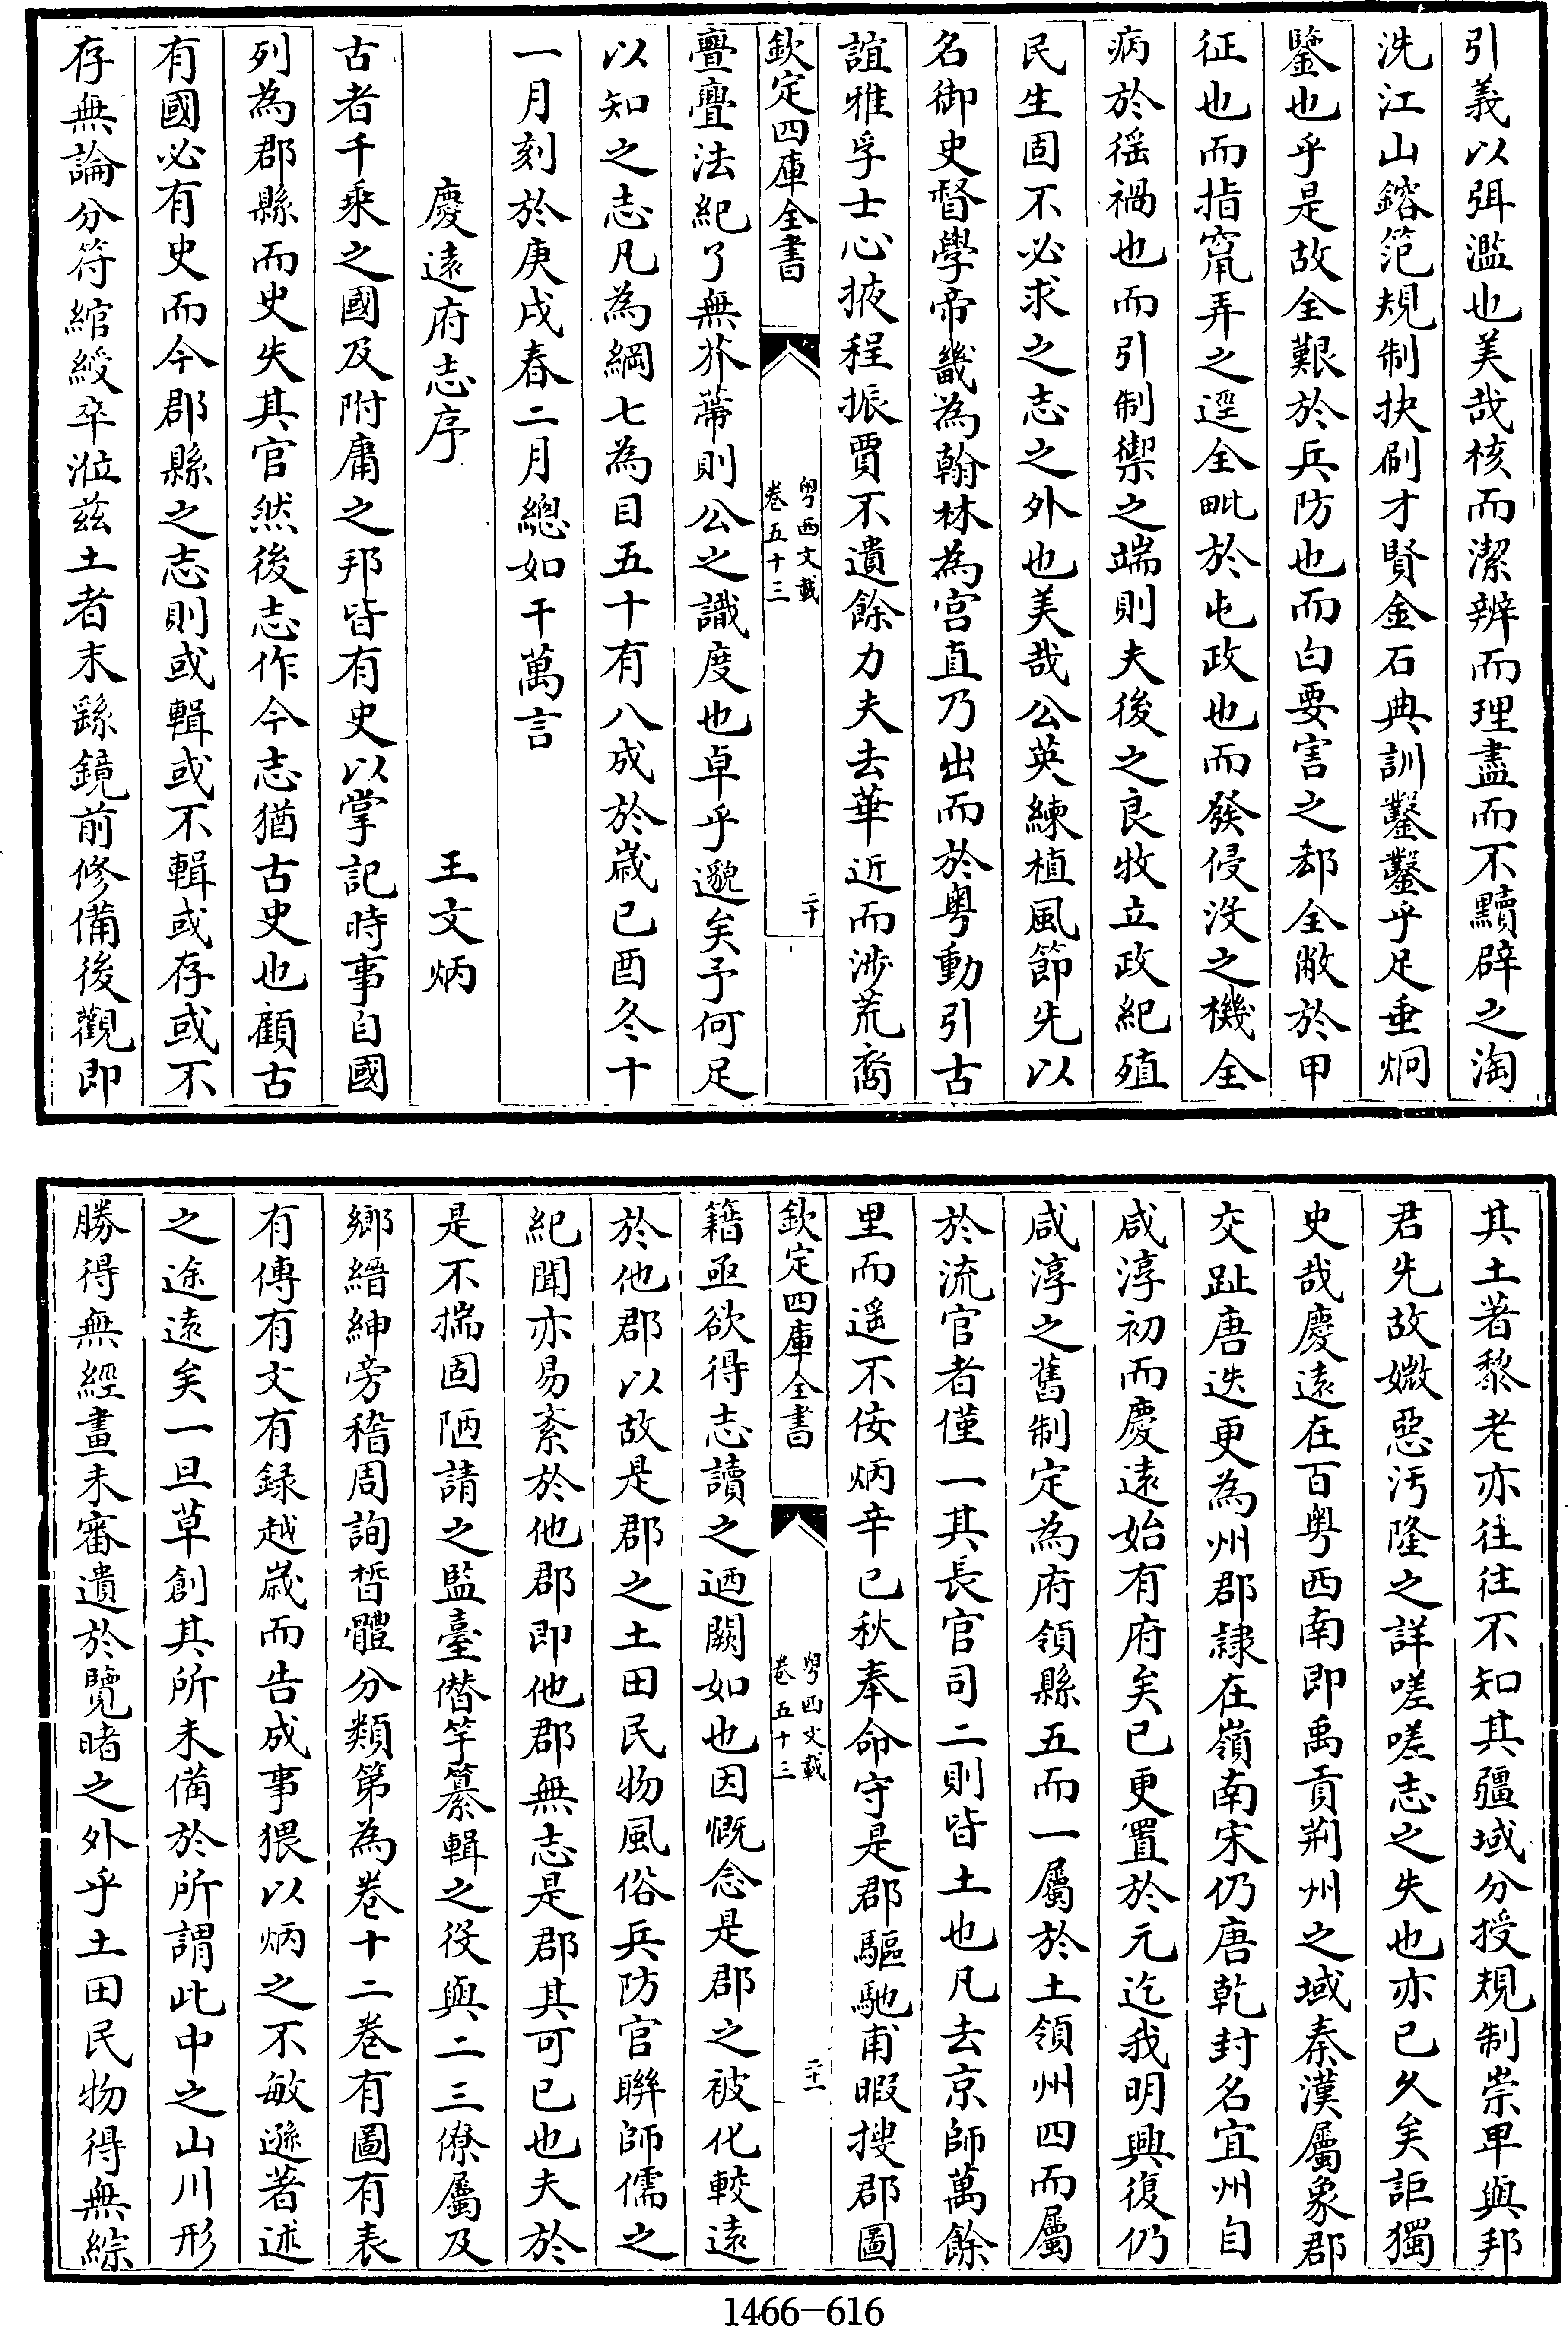 引義以弭濫也美哉核而潔辨而理盡而不黷辟之淘
洗江山鎔范規制抉刷才賢金石典訓鑿鑿乎足垂炯
鑒也乎是故全艱於兵防也而白要害之却全敝於甲
征也而指竄弄之逕全毗於屯政也而發侵没之機全
病於徭禍也而引制禦之端則夫後之良牧立政紀殖
民生固不必求之志之外也美哉公英練植風節先以
名御史督學帝畿為翰林為宫直乃出而於粤動引古
誼雅孚士心掖程振賈不遺餘力夫去華近而涉荒裔
欽定四庫全書
粤西文載
卷五十三
二十
亹亹法紀了無芥蔕則公之識度也卓乎邈矣予何足
以知之志凡為綱七為目五十有八成於嵗已酉冬十
一月刻於庚戌春二月總如干萬言
慶遠府志序
王文炳
古者千乘之國及附庸之邦皆有史以掌記時事自國
列為郡縣而史失其官然後志作今志猶古史也顧古
有國必有史而今郡縣之志則或輯或不輯或存或不
存無論分符綰綬卒涖兹土者末繇鏡前修備後觀即
其土著黎老亦往往不知其疆域分授規制崇卑與邦
君先故媺惡污隆之詳嗟嗟志之失也亦已久矣詎獨
史哉慶遠在百粤西南即禹貢荆州之域秦漢屬象郡
交趾唐迭更為州郡隷在嶺南宋仍唐乾封名宜州自
咸淳初而慶遠始有府矣已更置於元迄我明興復仍
咸淳之舊制定為府領縣五而一屬於土領州四而屬
於流官者僅一其長官司二則皆土也凡去京師萬餘
里而遥不佞炳辛已秋奉命守是郡驅馳甫暇搜郡圖
欽定四庫全書
粤西文載
卷五十三
二十一
籍亟欲得志讀之迺闕如也因慨念是郡之被化較遠
於他郡以故是郡之土田民物風俗兵防官聯師儒之
紀聞亦易紊於他郡即他郡無志是郡其可已也夫於
是不揣固陋請之監臺僭竽纂輯之役與二三僚屬及
鄉縉紳旁稽周詢晳體分類第為卷十二卷有圖有表
有傳有文有録越嵗而告成事猥以炳之不敏遜著述
之途遠矣一旦草創其所未備於所謂此中之山川形
勝得無經畫未審遺於覽睹之外乎土田民物得無綜
1466-616